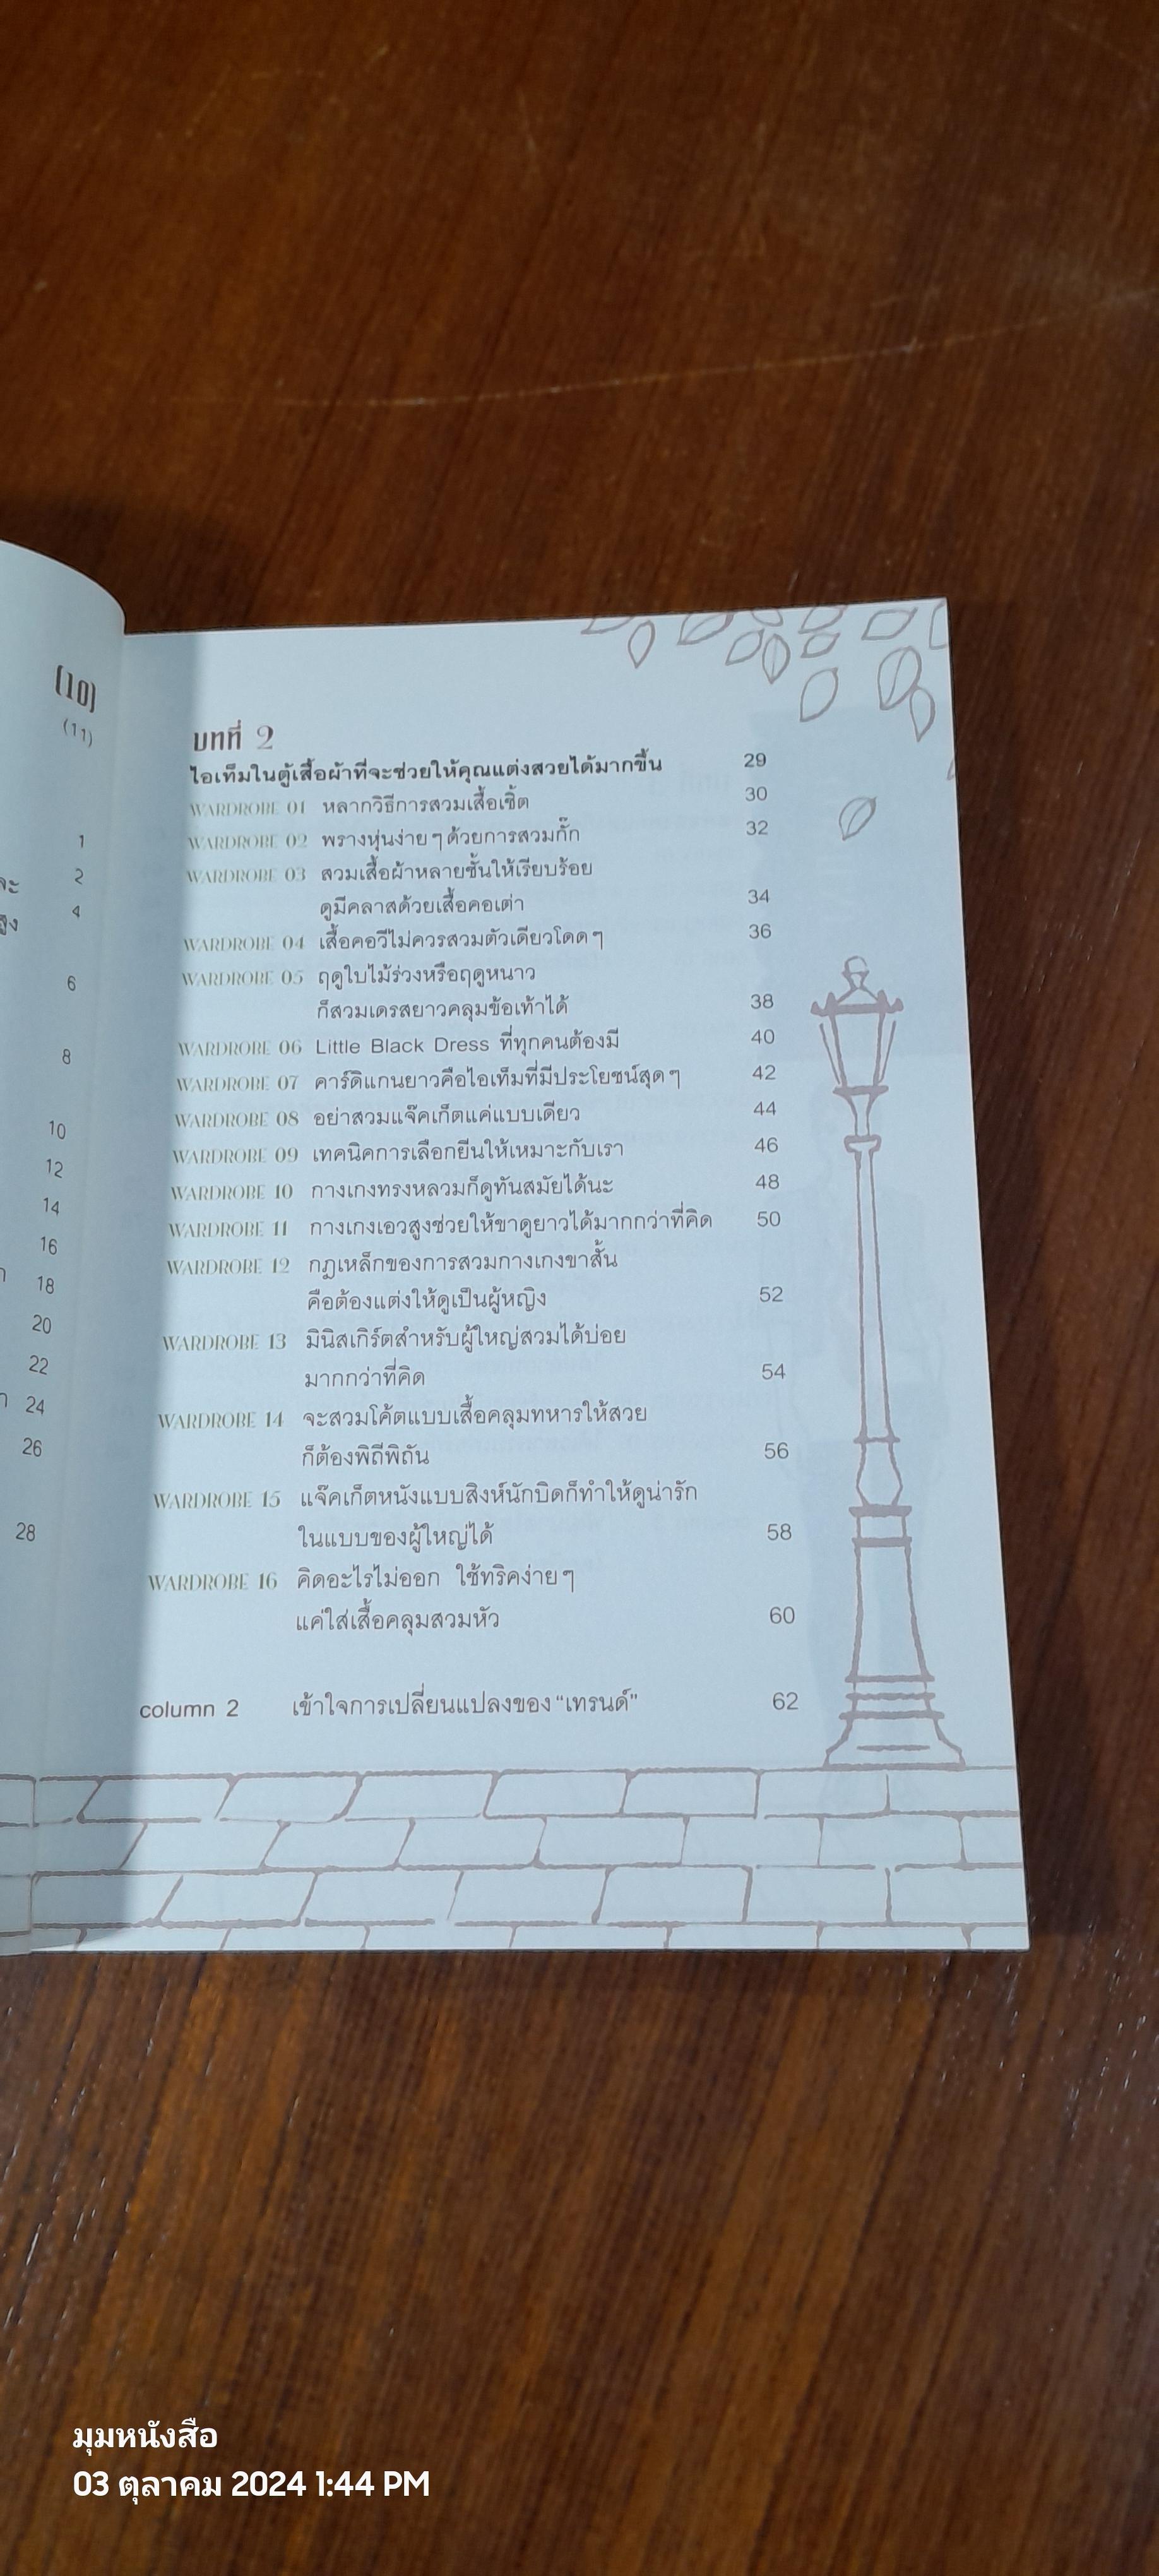 (10)
(11)
1
2
4
6
8
10
12
14
16
18
20
22
24
26
28
บทที่ 2
ไอเท็มในตู้เสื้อผ้าที่จะช่วยให้คุณแต่งสวยได้มากขึ้น 29
WARDROBE 01 หลากวิธีการสวมเสื้อเชิ้ต 30
WARDROBE 02 พรางหุ่นง่ายๆ ด้วยการสวมกั๊ก 32
WARDROBE 03 สวมเสื้อผ้าหลายชั้นให้เรียบร้อย
ดูมีคลาสด้วยเสื้อคอเต่า 34
WARDROBE 04 เสื้อคอวีไม่ควรสวมตัวเดียวโดดๆ 36
WARDROBE 05 ฤดูใบไม้ร่วงหรือฤดูหนาว
ก็สวมเดรสยาวคลุมข้อเท้าได้ 38
WARDROBE 06 Little Black Dress ที่ทุกคนต้องมี 40
WARDROBE 07 คาร์ดิแกนยาวคือไอเท็มที่มีประโยชน์สุดๆ 42
WARDROBE 08 อย่าสวมแจ๊คเก็ตแค่แบบเดียว 44
WARDROBE 09 เทคนิคการเลือกยีนให้เหมาะกับเรา 46
WARDROBE 10 กางเกงทรงหลวมก็ดูทันสมัยได้นะ 48
WARDROBE 11 กางเกงเอวสูงช่วยให้ขาดูยาวได้มากกว่าที่คิด 50
WARDROBE 12 กฎเหล็กของการสวมกางเกงขาสั้น
คือต้องแต่งให้ดูเป็นผู้หญิง 52
WARDROBE 13 มินิสเกิร์ตสำหรับผู้ใหญ่สวมได้บ่อย
มากกว่าที่คิด 54
WARDROBE 14 จะสวมโค้ตแบบเสื้อคลุมทหารให้สวย
ก็ต้องพิถีพิถัน 56
WARDROBE 15 แจ๊คเก็ตหนังแบบสิงห์นักบิดก็ทำให้ดูน่ารัก
ในแบบของผู้ใหญ่ได้ 58
WARDROBE 16 คิดอะไรไม่ออก ใช้ทริคง่ายๆ
แค่ใส่เสื้อคลุมสวมหัว 60
column 2 เข้าใจการเปลี่ยนแปลงของ “เทรนด์” 62
มุมหนังสือ
03 ตุลาคม 2024 1:44 PM